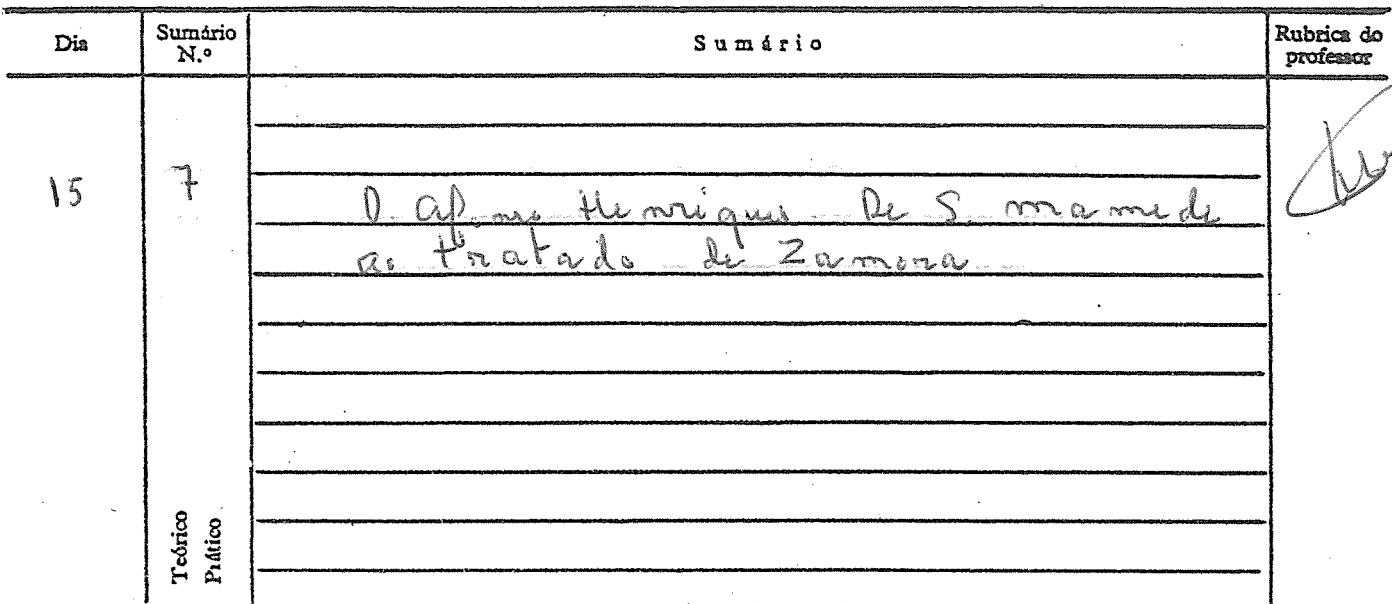 Dia Sumário N.º Sumário Rubrica do professor
15 7 D. Afonso Henriques De S. mamede
ao tratado de Zamora
Teórico
Prático